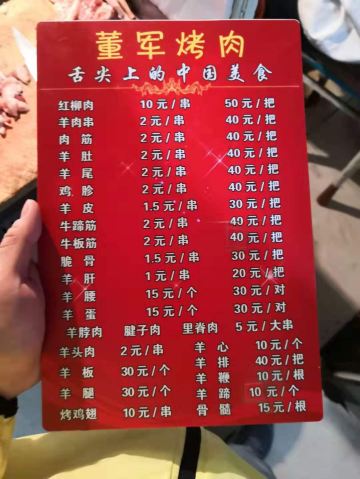 董军烤肉
舌尖上的中国美食
红柳肉 10元/串 50元/把
羊肉串 2元/串 40元/把
肉筋 2元/串 40元/把
羊肚 2元/串 40元/把
羊尾 2元/串 40元/把
鸡胗 2元/串 40元/把
羊皮 1.5元/串 30元/把
牛蹄筋 2元/串 40元/把
牛板筋 2元/串 40元/把
脆骨 1.5元/串 30元/把
羊肝 1元/串 20元/把
羊腰 15元/个 30元/对
羊蛋 15元/个 30元/对
羊脖肉 腱子肉 里脊肉 5元/大串
羊头肉 2元/串 羊心 10元/个
羊板 30元/个 羊排 40元/把
羊腿 30元/个 羊鞭 10元/根
烤鸡翅 10元/串 羊蹄 10元/个
骨髓 15元/根